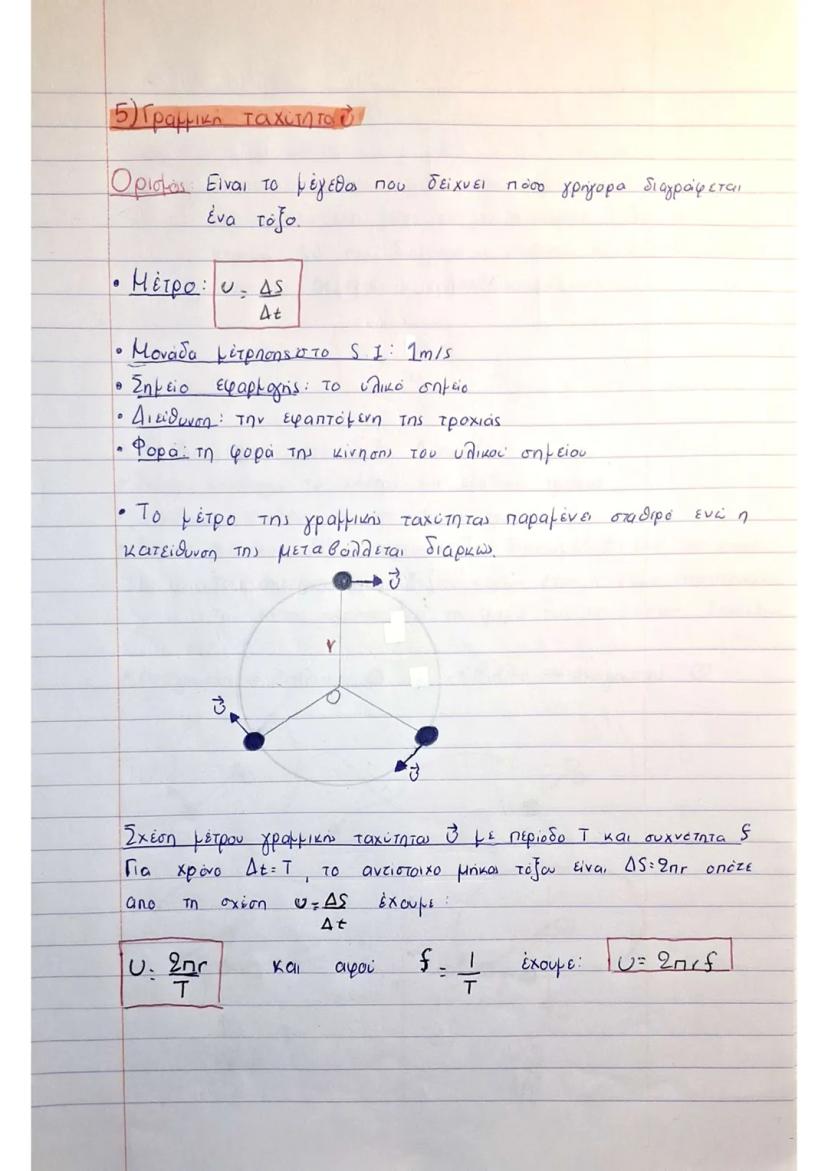 5) Γραμμική ταχύτητα υ⃗
Ορισμός: Είναι το μέγεθος που δείχνει πόσο γρήγορα διαγράφεται
ένα τόξο.
• Μέτρο: υ = ΔS/Δt
• Μονάδα μέτρησης στο S I: 1m/s
• Σημείο εφαρμογής: το υλικό σημείο
• Διεύθυνση: την εφαπτόμενη της τροχιάς
• Φορά: τη φορά της κίνησης του υλικού σημείου
• Το μέτρο της γραμμικής ταχύτητας παραμένει σταθερό ενώ η
κατεύθυνση της μεταβάλλεται διαρκώς.
υ⃗
r
O
υ⃗
υ⃗
Σχέση μέτρου γραμμικής ταχύτητας υ⃗ με περίοδο T και συχνότητα f
Για χρόνο Δt=T, το αντίστοιχο μήκος τόξου είναι ΔS=2πr οπότε
απο τη σχέση υ = ΔS/Δt έχουμε:
υ = 2πr/T και αφού f = 1/T έχουμε: υ = 2πrf